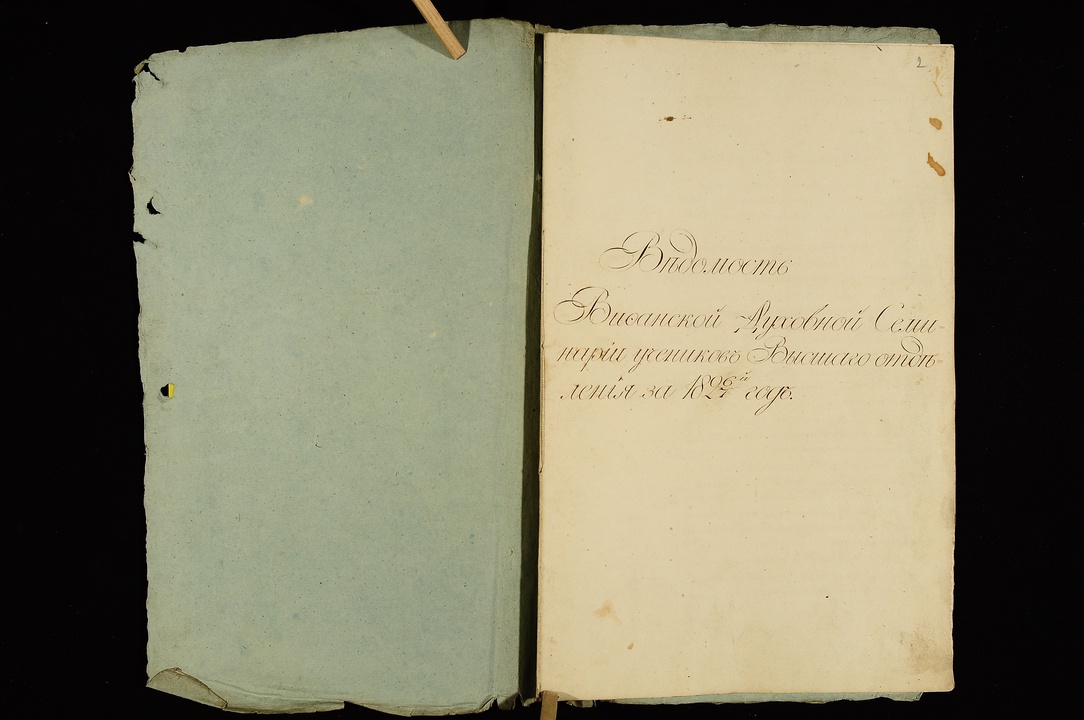 2
Вѣдомость
Виѳанской Духовной Семи-
наріи учениковъ Высшаго отдѣ-
ленія за 1826/27й годъ.